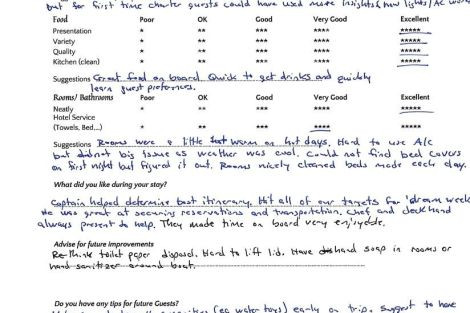 but for first time charter guests could have used more insights, how lights/AC work
Food Poor OK Good Very Good Excellent
Presentation * ** *** **** *****
Variety * ** *** **** *****
Quality * ** *** **** *****
Kitchen (clean) * ** *** **** *****
Suggestions Great food on board. Quick to get drinks and quickly
learn guest preferences.
Rooms/ Bathrooms Poor OK Good Very Good Excellent
Neatly * ** *** **** *****
Hotel Service
(Towels, Bed...) * ** *** **** *****
Suggestions Rooms were a little warm on hot days. Hard to use A/C
but did not big issue as weather was cool. Could not find bed covers
on first night but figured it out. Rooms nicely cleaned beds made each day.
What did you like during your stay?
Captain helped determine best itinerary. Hit all of our targets for 'dream week'
He was great at securing reservations and transportation. Chef and deckhand
always present to help. They made time on board very enjoyable.
Advise for future improvements
Re-think toilet paper disposal. Hard to lift lid. Have hand soap in rooms or
hand sanitizer around boat.
Do you have any tips for future Guests?
(eg water toys) early on trip. Suggest to have